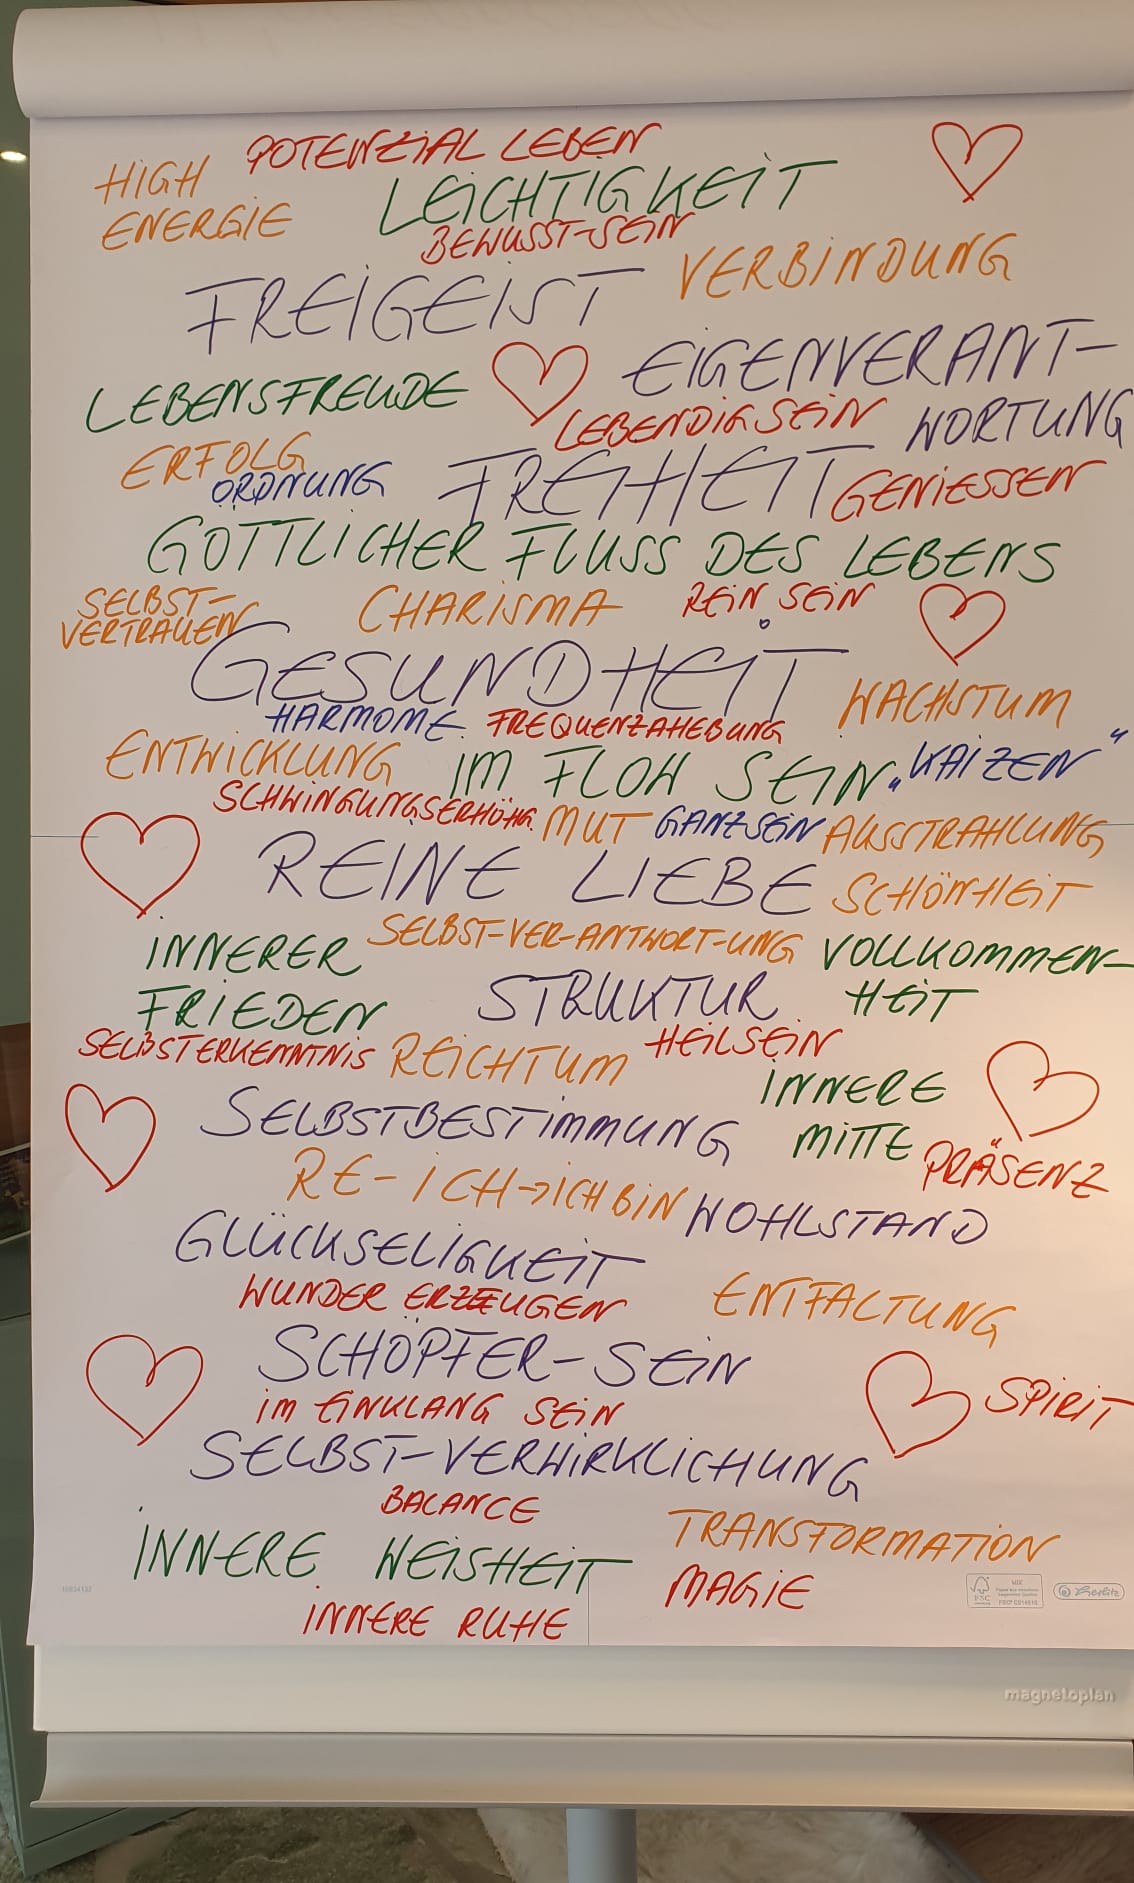 POTENZIAL LEBEN
HIGH
ENERGIE
LEICHTIGKEIT
BEWUSST-SEIN
VERBINDUNG
FREIGEIST
EIGENVERANT-
WORTUNG
LEBENSFREUDE
LEBENDIGSEIN
ERFOLG
ORDNUNG
FREIHEIT
GENIESSEN
GÖTTLICHER FLUSS DES LEBENS
SELBST-
VERTRAUEN
CHARISMA
REIN SEIN
GESUNDHEIT
HARMONIE
FREQUENZAHEBUNG
WACHSTUM
ENTWICKLUNG
IM FLOW SEIN
„KAIZEN“
SCHWINGUNGSERHÖHG.
MUT
GANZSEIN
AUSSTRAHLUNG
REINE LIEBE
SCHÖNHEIT
INNERER
FRIEDEN
SELBST-VER-ANTWORT-UNG
VOLLKOMMEN-
HEIT
STRUKTUR
SELBSTERKENNTNIS
REICHTUM
HEILSEIN
INNERE
MITTE
SELBSTBESTIMMUNG
PRÄSENZ
RE-ICH→ICH BIN
WOHLSTAND
GLÜCKSELIGKEIT
WUNDER ERZEUGEN
ENTFALTUNG
SCHÖPFER-SEIN
IM EINKLANG SEIN
SPIRIT
SELBST-VERWIRKLICHUNG
BALANCE
TRANSFORMATION
INNERE WEISHEIT
MAGIE
INNERE RUHE
FSC
MIX
Herlitz
magnetoplan